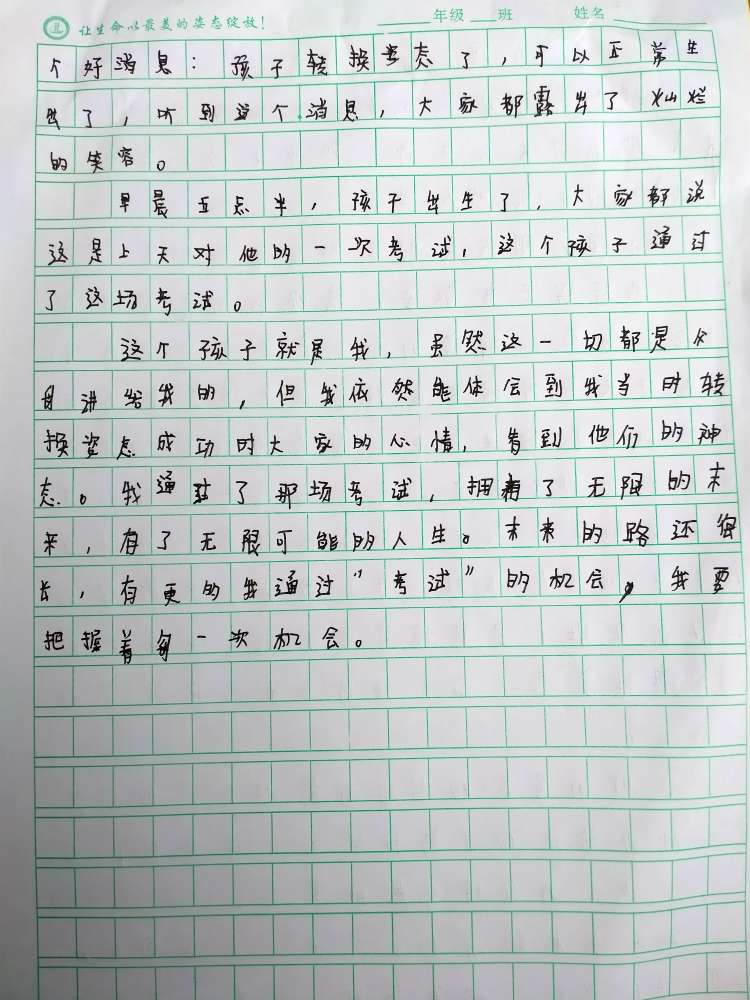 让生命以最美的姿态绽放！ ______年级 ___班 姓名______
个好消息：孩子转换姿态了，可以正常生
出了，听到这个消息，大家都露出了灿烂
的笑容。
早晨五点半，孩子出生了，大家都说
这是上天对他的一次考试，这个孩子通过
了这场考试。
这个孩子就是我，虽然这一切都是父
母讲给我的，但我依然能体会到我当时转
换姿态成功时大家的心情，看到他们的神
态。我通过了那场考试，拥有了无限的未
来，有了无限可能的人生。未来的路还很
长，有更的我通过“考试”的机会，我要
把握着每一次机会。